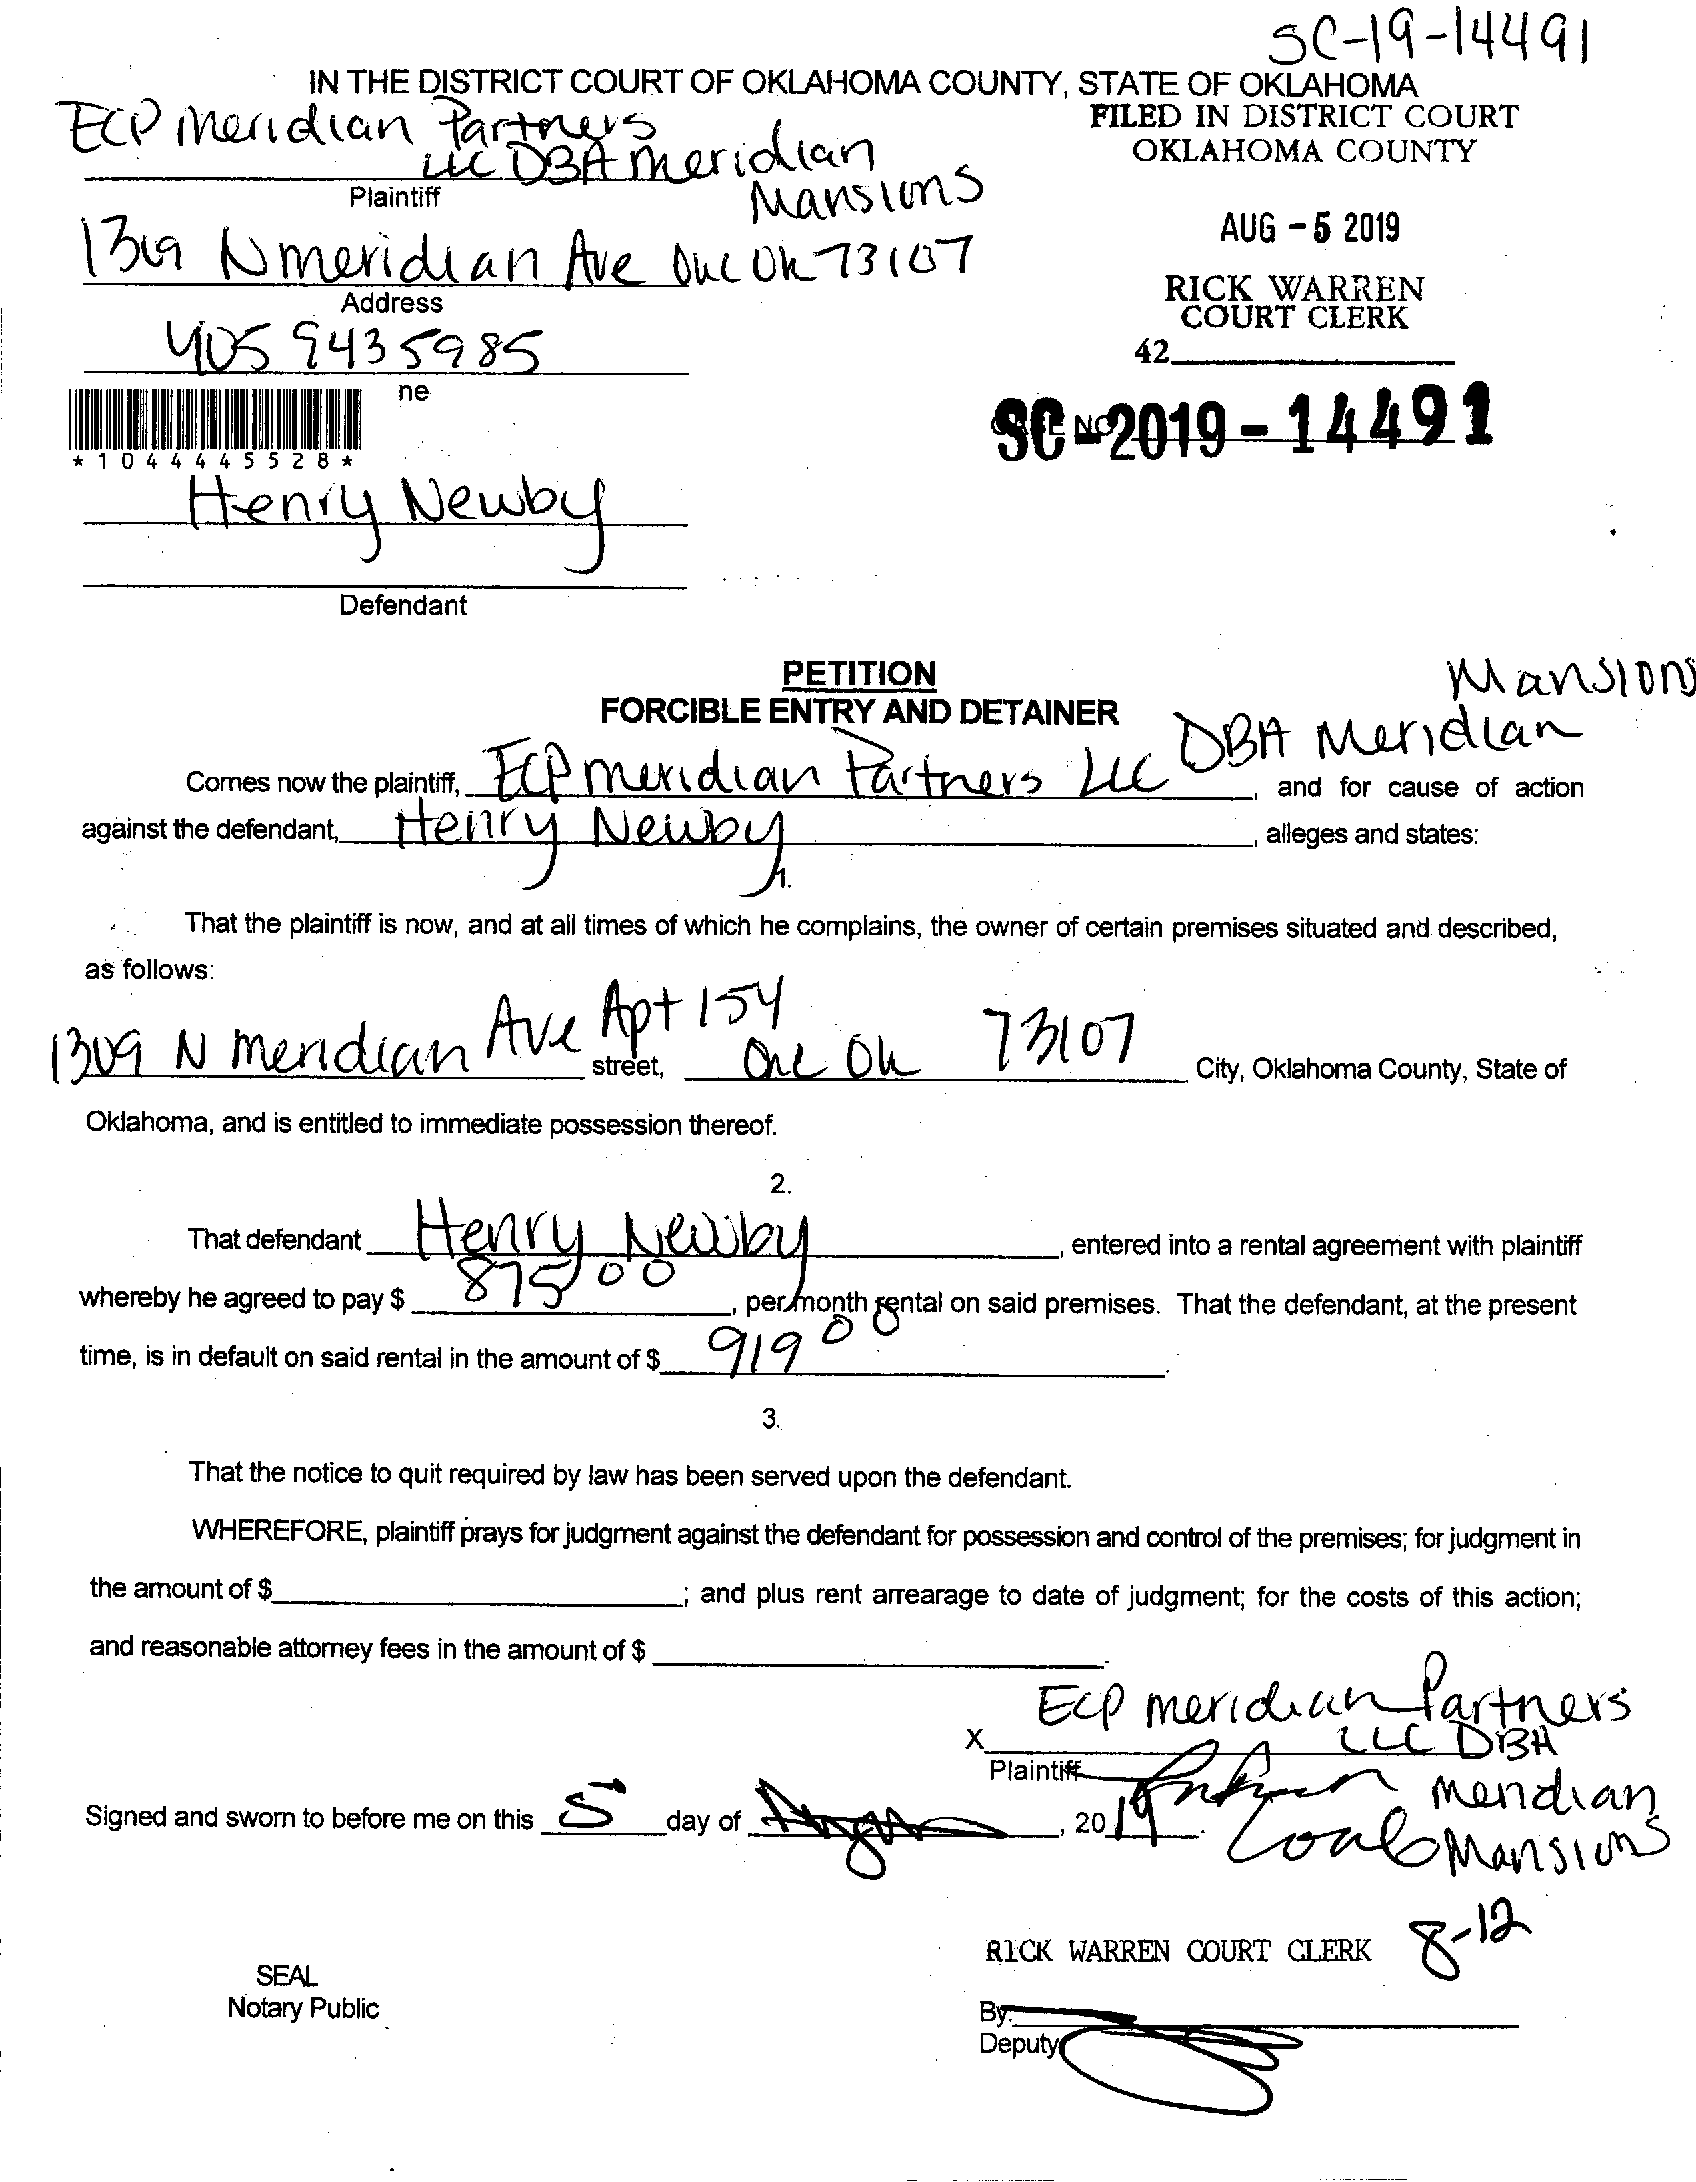 SC-19-14491
IN THE DISTRICT COURT OF OKLAHOMA COUNTY, STATE OF OKLAHOMA
ECP Meridian Partners
LLC DBA Meridian
Mansions
Plaintiff
N Meridian Ave OKC OK 73107
Address
405 943 5985
ne
*1044445528*
FILED IN DISTRICT COURT
OKLAHOMA COUNTY
AUG - 5 2019
RICK WARREN
COURT CLERK
42
SC-2019-14491
Henry Newby
Defendant
PETITION
FORCIBLE ENTRY AND DETAINER
Comes now the plaintiff, ECP Meridian Partners LLC DBA Meridian Mansions, and for cause of action
against the defendant, Henry Newby, alleges and states:
1.
That the plaintiff is now, and at all times of which he complains, the owner of certain premises situated and described,
as follows:
1309 N Meridian Ave Apt 154 street, OKC OK 73107 City, Oklahoma County, State of
Oklahoma, and is entitled to immediate possession thereof.
2.
That defendant Henry Newby, entered into a rental agreement with plaintiff
whereby he agreed to pay $ 875 00, per month rental on said premises. That the defendant, at the present
time, is in default on said rental in the amount of $ 919 00.
3.
That the notice to quit required by law has been served upon the defendant.
WHEREFORE, plaintiff prays for judgment against the defendant for possession and control of the premises; for judgment in
the amount of $ ; and plus rent arrearage to date of judgment; for the costs of this action;
and reasonable attorney fees in the amount of $ .
ECP Meridian Partners
X LLC DBA
Plaintiff Meridian
Mansions
Signed and sworn to before me on this 5 day of , 2019.
8-12
RICK WARREN COURT CLERK
SEAL
Notary Public
By:
Deputy